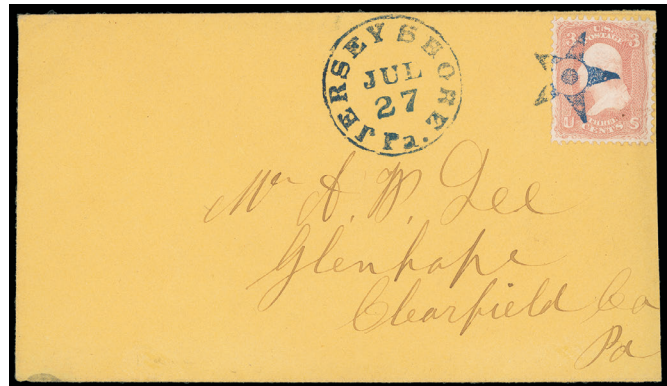 JERSEY SHORE
JUL
27
Pa.
3 U.S. 3
POSTAGE
U THREE S
CENTS
Mr A. W. Lee
Glenhope
Clearfield Co
Pa